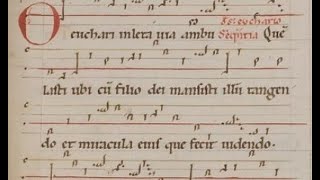 De eucharıo
O euchari in leta uia ambu Sequētia Quē
lasti ubi cū filio dei mansisti illū tangen
do et miracula eius que fecit uidendo.